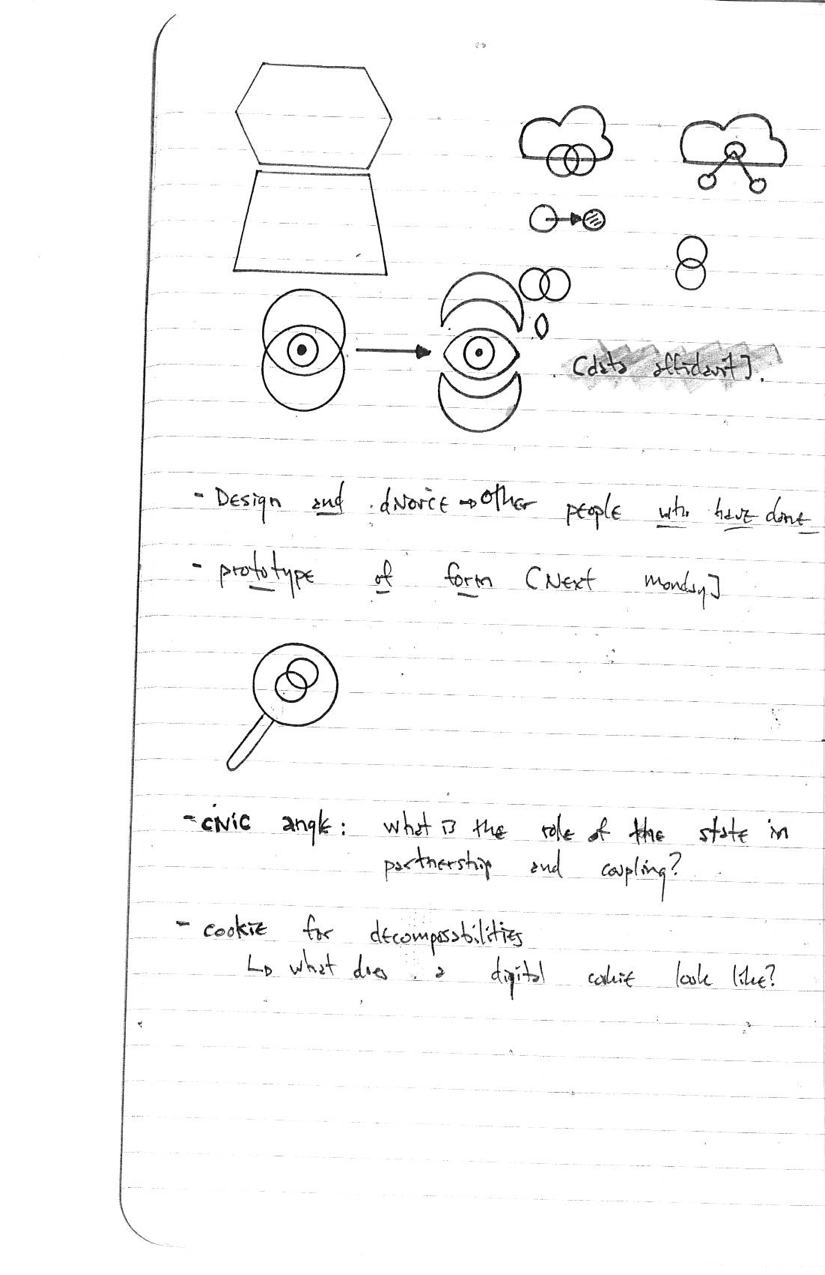 [data affidavit].
- Design and divorce → other people who have done
- prototype of form [Next monday]
- civic angle: what is the role of the state in
partnership and coupling?
- cookie for decomposabilities
↳ what does a digital cookie look like?